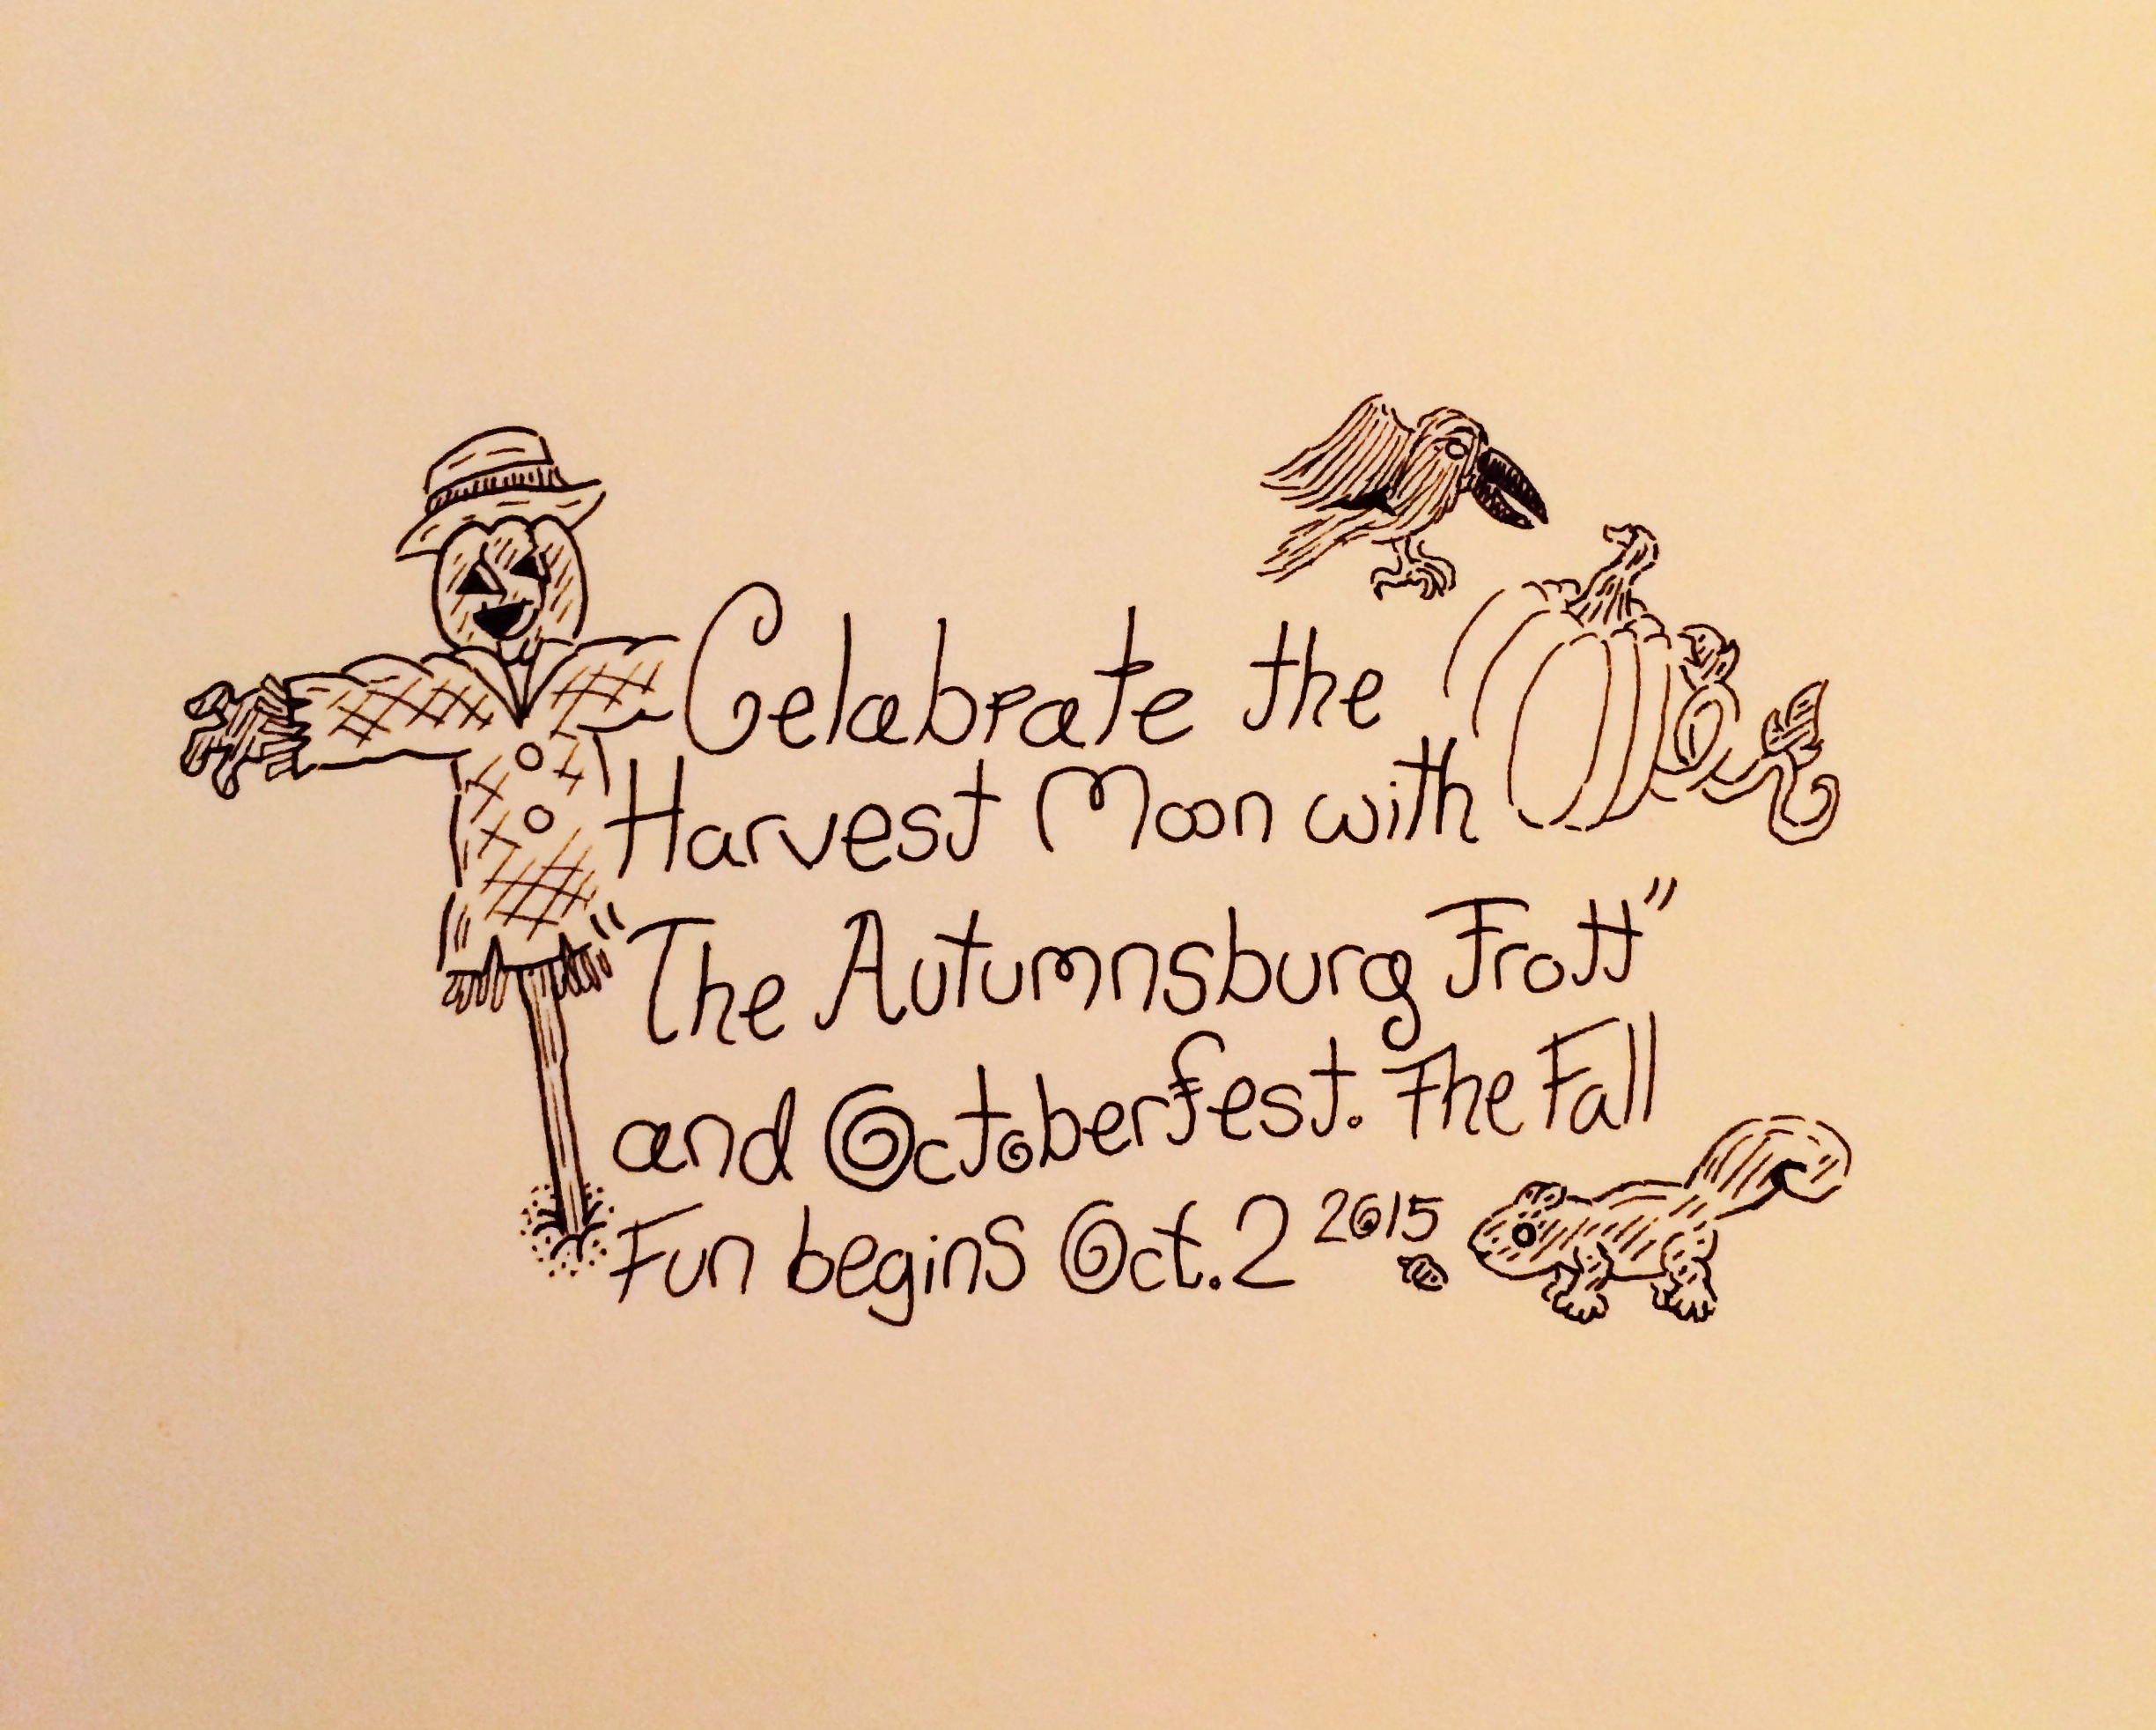 Celebrate the
Harvest Moon with
"The Autumnsburg Trott"
and Octoberfest. The Fall
Fun begins Oct. 2 2015